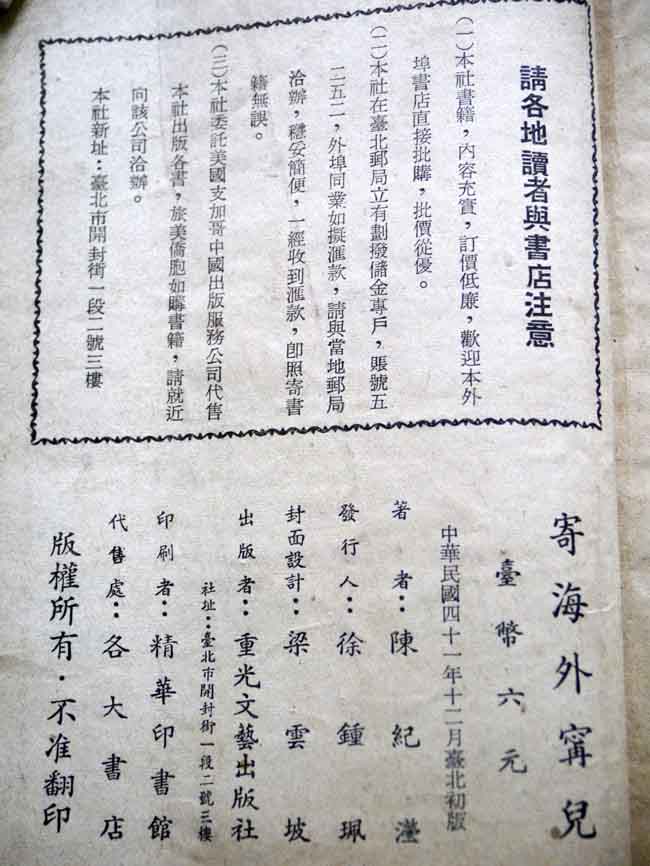 請各地讀者與書店注意
(一)本社書籍，內容充實，訂價低廉，歡迎本外
埠書店直接批購，批價從優。
(二)本社在臺北郵局立有劃撥儲金專戶，賬號五
二五二，外埠同業如擬滙款，請與當地郵局
洽辦，穩妥簡便，一經收到滙款，即照寄書
籍無誤。
(三)本社委託美國支加哥中國出版服務公司代售
本社出版各書，旅美僑胞如購書籍，請就近
向該公司洽辦。
本社新址：臺北市開封街一段二號三樓
寄海外寗兒
臺幣六元
中華民國四十一年十二月臺北初版
著者：陳紀瀅
發行人：徐鍾珮
封面設計：梁雲坡
出版者：重光文藝出版社
社址：臺北市開封街一段二號三樓
印刷者：精華印書館
代售處：各大書店
版權所有・不准翻印